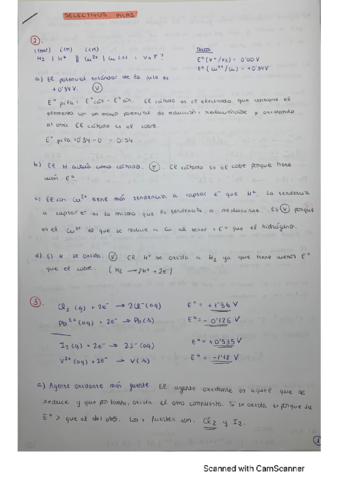 SELECTIVOS PILAS
2.
(1atm) (1M) (1M) Datos
H2 | H+ || Cu2+ | Cu E°(H+/H2) = 0'00 V
E°(Cu2+/Cu) = +0'34V
a) El potencial estándar de la pila es
+0'34V. (V)
E° pila = E° cát - E° án. El cátodo es el electrodo que
E° pila = 0'34 - 0 = 0'34
b) El H actúa como cátodo. (F). El cátodo es el cobre porque tiene
E°
c) El ion Cu2+ tiene más tendencia a captar e- que H+. La tendencia
a captar e- es la misma que la tendencia a reducirse. Es (V) porque
es el Cu2+ el que se reduce a Cu al tener > E° que el hidrógeno.
d) El H se oxida. (V) El H+ se oxida a H2 ya que tiene menos E°
que el cobre. (H2 → 2H+ + 2e-)
3.
Cl2 (g) + 2e- → 2Cl-(aq) E° = +1'36 V
Pb2+(aq) + 2e- → Pb(s) E° = -0'126 V
I2(g) + 2e- → 2I-(aq) E° = +0'535V
V2+(aq) + 2e- → V(s) E° = -1'18 V
a) Agente oxidante más fuerte. El agente oxidante es aquel que se
reduce y que por tanto, oxida el otro compuesto. Si se oxida es porque su
E° > que el del otro. Los + fuertes son: Cl2 y I2.
1
Scanned with CamScanner